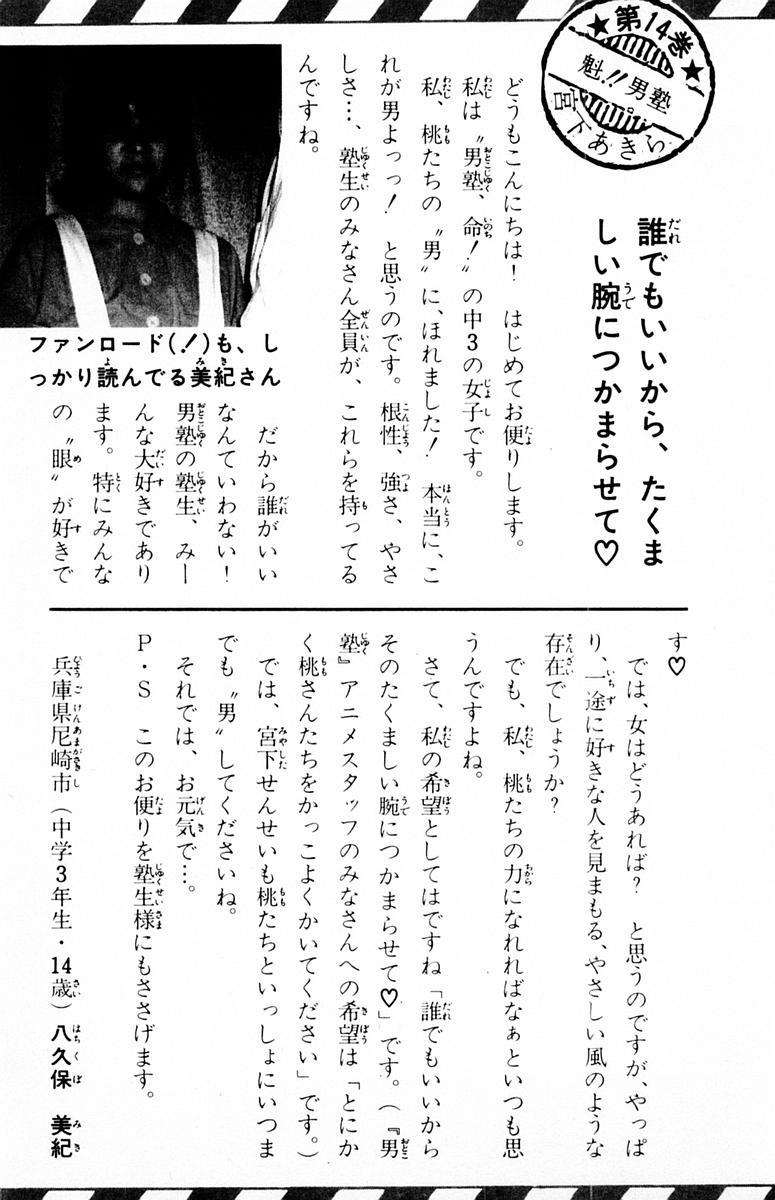 ★第14巻★
魁!!男塾
宮下あきら
誰でもいいから、たくま
しい腕につかまらせて♡
どうもこんにちは！　はじめてお便りします。
私は〝男塾、命！〟の中3の女子です。
私、桃たちの〝男〟に、ほれました！　本当に、こ
れが男よっっ！　と思うのです。根性、強さ、やさ
しさ…、塾生のみなさん全員が、これらを持ってる
んですね。
ファンロード(！)も、し
っかり読んでる美紀さん
だから誰がいい
なんていわない！
男塾の塾生、みー
んな大好きであり
ます。特にみんな
の〝眼〟が好きで
す♡
では、女はどうあれば？　と思うのですが、やっぱ
り、一途に好きな人を見まもる、やさしい風のような
存在でしょうか？
でも、私、桃たちの力になれればなぁといつも思
うんですよね。
さて、私の希望としてはですね「誰でもいいから
そのたくましい腕につかまらせて♡」です。(『男
塾』アニメスタッフのみなさんへの希望は「とにか
く桃さんたちをかっこよくかいてください」です。)
では、宮下せんせいも桃たちといっしょにいつま
でも〝男〟してくださいね。
それでは、お元気で…。
P・S　このお便りを塾生様にもささげます。
兵庫県尼崎市(中学3年生・14歳)八久保　美紀